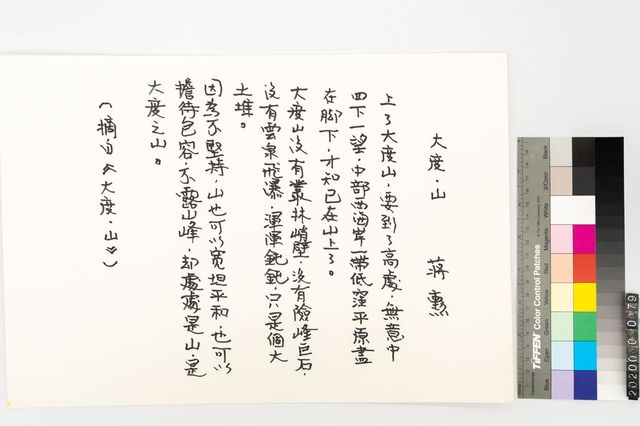 大度·山
蔣勳
上了大度山，要到了高處，無意中
四下一望，中部西海岸一帶低窪平原盡
在腳下，才知已在山上了。
大度山沒有叢林峭壁，沒有險峰巨石，
沒有雲泉飛瀑，渾渾鈍鈍，只是個大
土堆。
因為不堅持，山也可以寬坦平和，也可以
擔待包容，不露山峰，却處處是山，是
大度之山。
（摘自《大度·山》）
Black
3/Color
White
Magenta
Red
Yellow
Green
Cyan
Blue
TIFFEN Color Control Patches